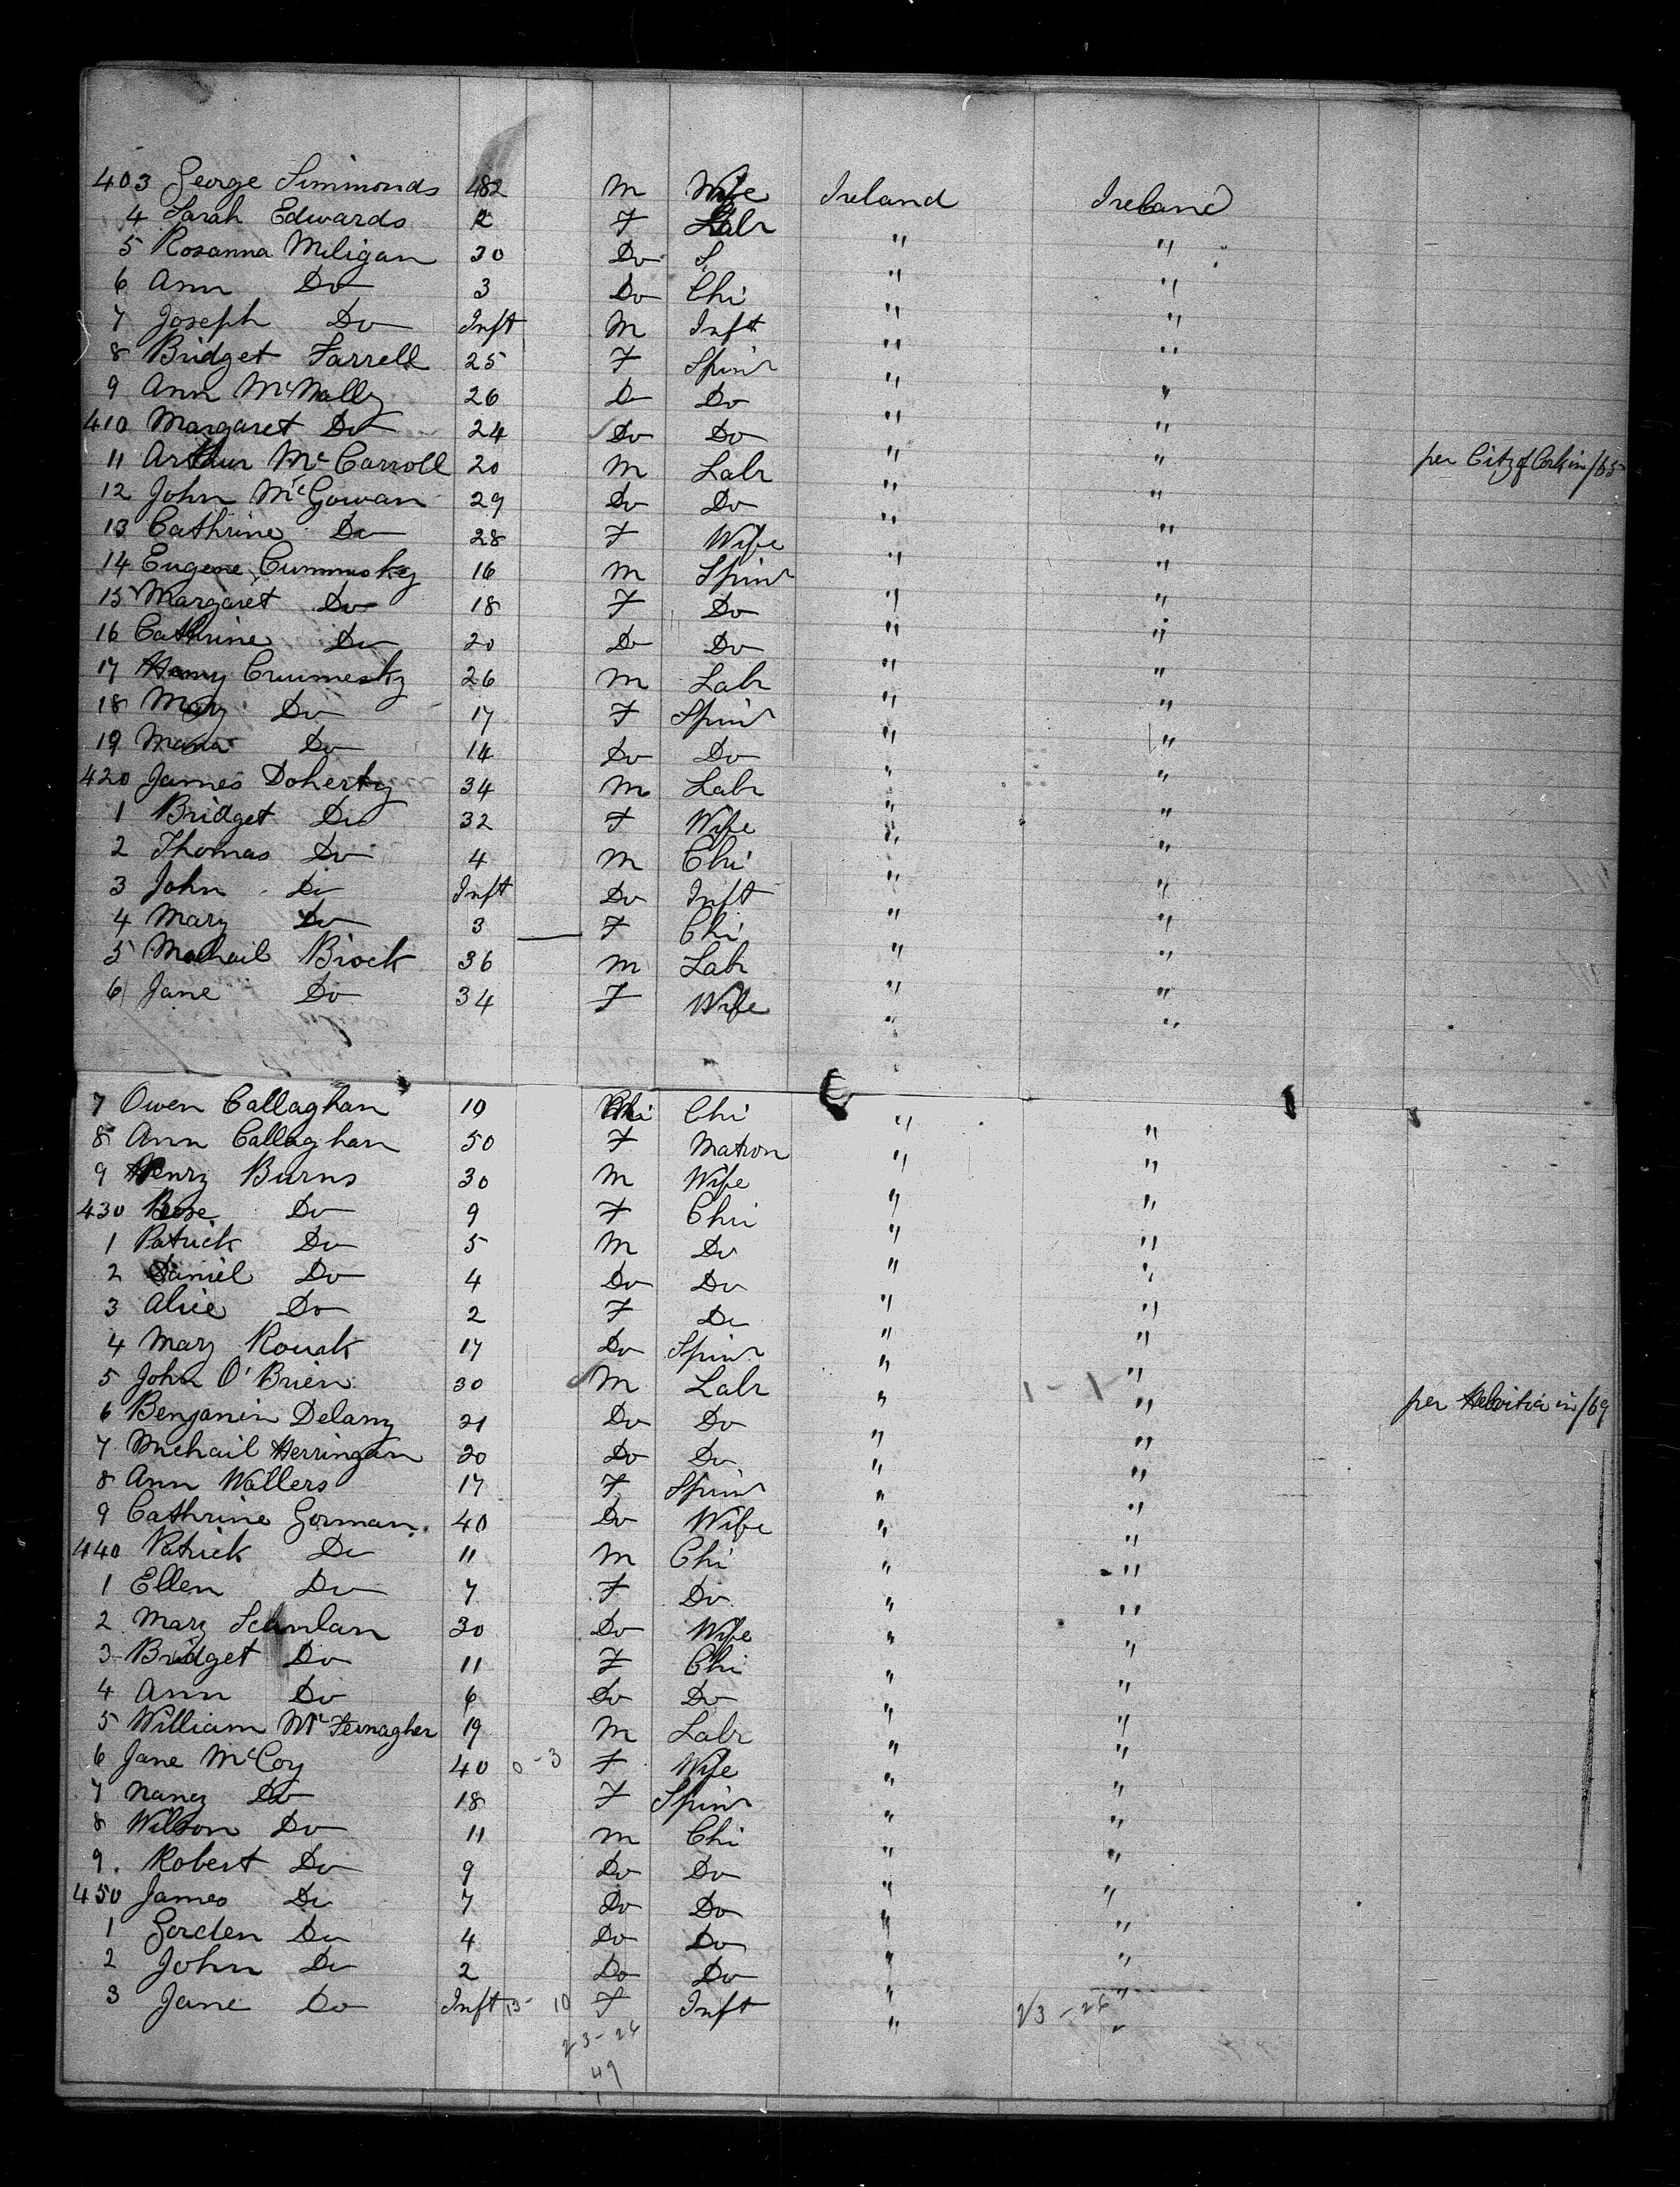 403 George Simmonds 482 M Wife Ireland Ireland
4 Sarah Edwards 2 F Labr " "
5 Rosanna Miligan 30 Do S " "
6 Ann Do 3 Do Chi " "
7 Joseph Do Inft M Inft " "
8 Bridget Farrell 25 F Spinr " "
9 Ann McNally 26 Do Do " "
410 Margaret Do 24 Do Do " "
11 Arthur McCarroll 20 M Labr " " per City of Cork in /65
12 John McGowan 29 Do Do " "
13 Cathrine Do 28 F Wife " "
14 Eugene Cummisky 16 M Spinr " "
15 Margaret Do 18 F Do " "
16 Cathrine Do 20 Do Do " "
17 Henry 26 M Labr " "
18 Mary Do 17 F Spinr " "
19 Maria Do 14 Do Do " "
420 James Doherty 34 M Labr " "
1 Bridget Do 32 F Wife " "
2 Thomas Do 4 M Chi " "
3 John Do Inft Do Inft " "
4 Mary Do 3 F Chi " "
5 Michail Brock 36 M Labr " "
6 Jane Do 34 F Wife " "
7 Owen Callaghan 10 Chi " "
8 Ann Callaghan 50 F Matron " "
9 Henry Burns 30 M Wife " "
430 Rose Do 9 F Chi " "
1 Patrick Do 5 M Do " "
2 Daniel Do 4 Do Do " "
3 Alice Do 2 F Do " "
4 Mary Rouak 17 Do Spinr " "
5 John O'Brien 30 M Labr " 1-1 "
6 Benjamin Delany 21 Do Do " " per Helvitia in /69
7 Michail Herringan 20 Do Do " "
8 Ann Wallers 17 F Spinr " "
9 Cathrine Gorman 40 Do Wife " "
440 Patrick Do 11 M Chi " "
1 Ellen Do 7 F Do " "
2 Mary Scanlan 30 Do Wife " "
3 Bridget Do 11 F Chi " "
4 Ann Do 6 Do Do " "
5 William McFernagher 19 M Labr " "
6 Jane McCoy 40 0-3 F Wife " "
7 Nancy Do 18 F Spinr " "
8 Wilson Do 11 M Chi " "
9 Robert Do 9 Do Do " "
450 James Do 7 Do Do " "
1 Gorden Do 4 Do Do " "
2 John Do 2 Do Do " "
3 Jane Do Inft 13-10 F Inft " 23-26 "
23-26
49